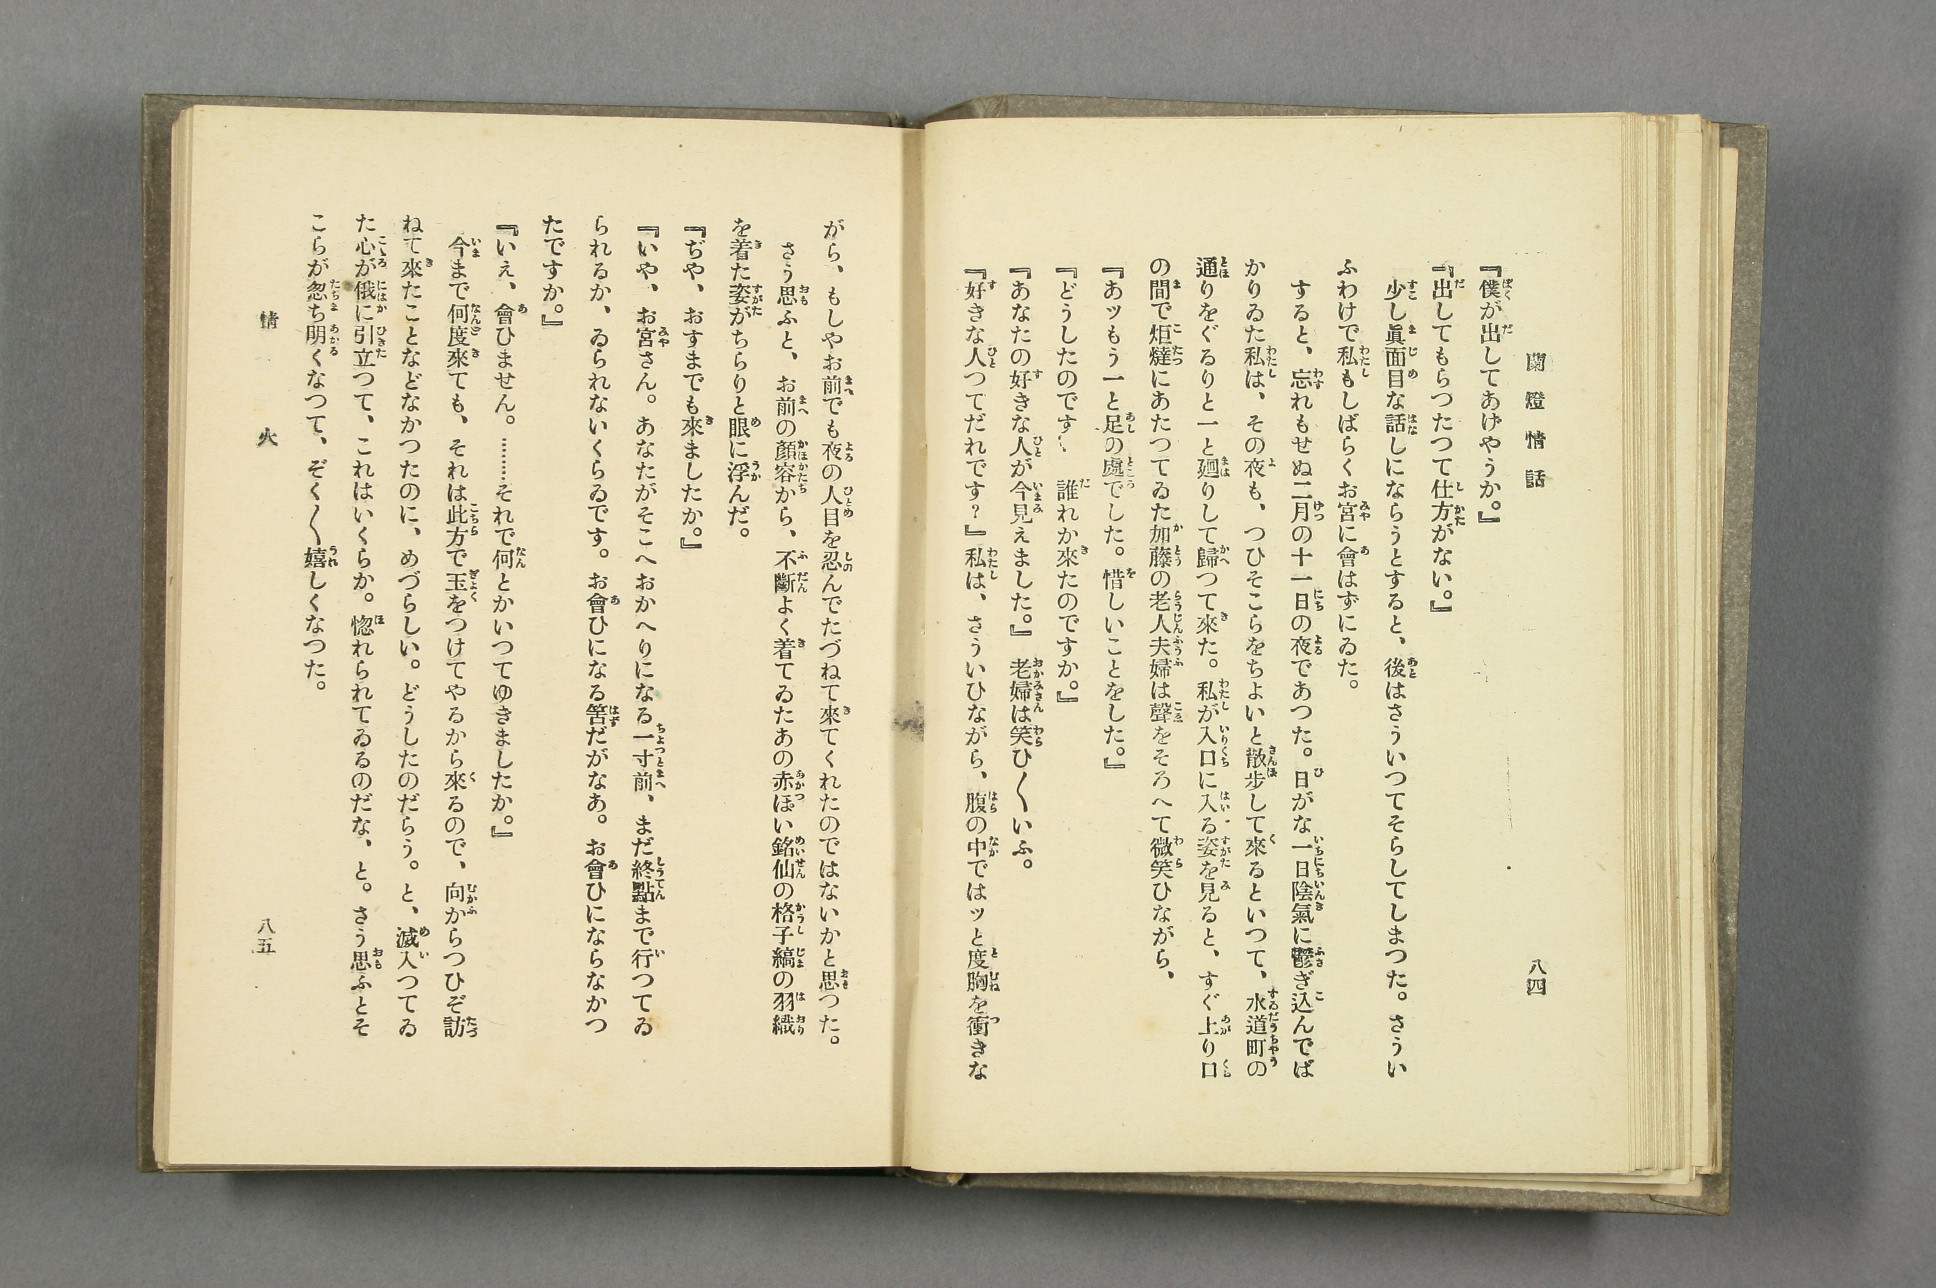 蘭燈情話
八四
『僕が出してあげやうか。』
『出してもらつたつて仕方がない。』
少し眞面目な話しにならうとすると、後はさういつてそらしてしまつた。さうい
ふわけで私もしばらくお宮に會はずにゐた。
すると、忘れもせぬ二月の十一日の夜であつた。日がな一日陰氣に鬱ぎ込んでば
かりゐた私は、その夜も、つひそこらをちよいと散歩して來るといつて、水道町の
通りをぐるりと一と廻りして歸つて來た。私が入口に入る姿を見ると、すぐ上り口
の間で炬燵にあたつてゐた加藤の老人夫婦は聲をそろへて微笑ひながら、
『あッもう一と足の處でした。惜しいことをした。』
『どうしたのです、誰れか來たのですか。』
『あなたの好きな人が今見えました。』老婦は笑ひ〱いふ。
『好きな人つてだれです？』私は、さういひながら、腹の中ではッと度胸を衝きな
がら、もしやお前でも夜の人目を忍んでたづねて來てくれたのではないかと思つた。
さう思ふと、お前の顔容から、不斷よく着てゐたあの赤ぽい銘仙の格子縞の羽織
を着た姿がちらりと眼に浮んだ。
『ぢや、おすまでも來ましたか。』
『いや、お宮さん。あなたがそこへおかへりになる一寸前、まだ終點まで行つてゐ
られるか、ゐられないくらゐです。お會ひになる筈だがなあ。お會ひにならなかつ
たですか。』
『いえ、會ひません。………それで何とかいつてゆきましたか。』
今まで何度來ても、それは此方で玉をつけてやるから來るので、向からつひぞ訪
ねて來たことなどなかつたのに、めづらしい。どうしたのだらう。と、滅入つてゐ
た心が俄に引立つて、これはいくらか。惚れられてゐるのだな、と。さう思ふとそ
こらが忽ち明くなつて、ぞく〱嬉しくなつた。
情火
八五